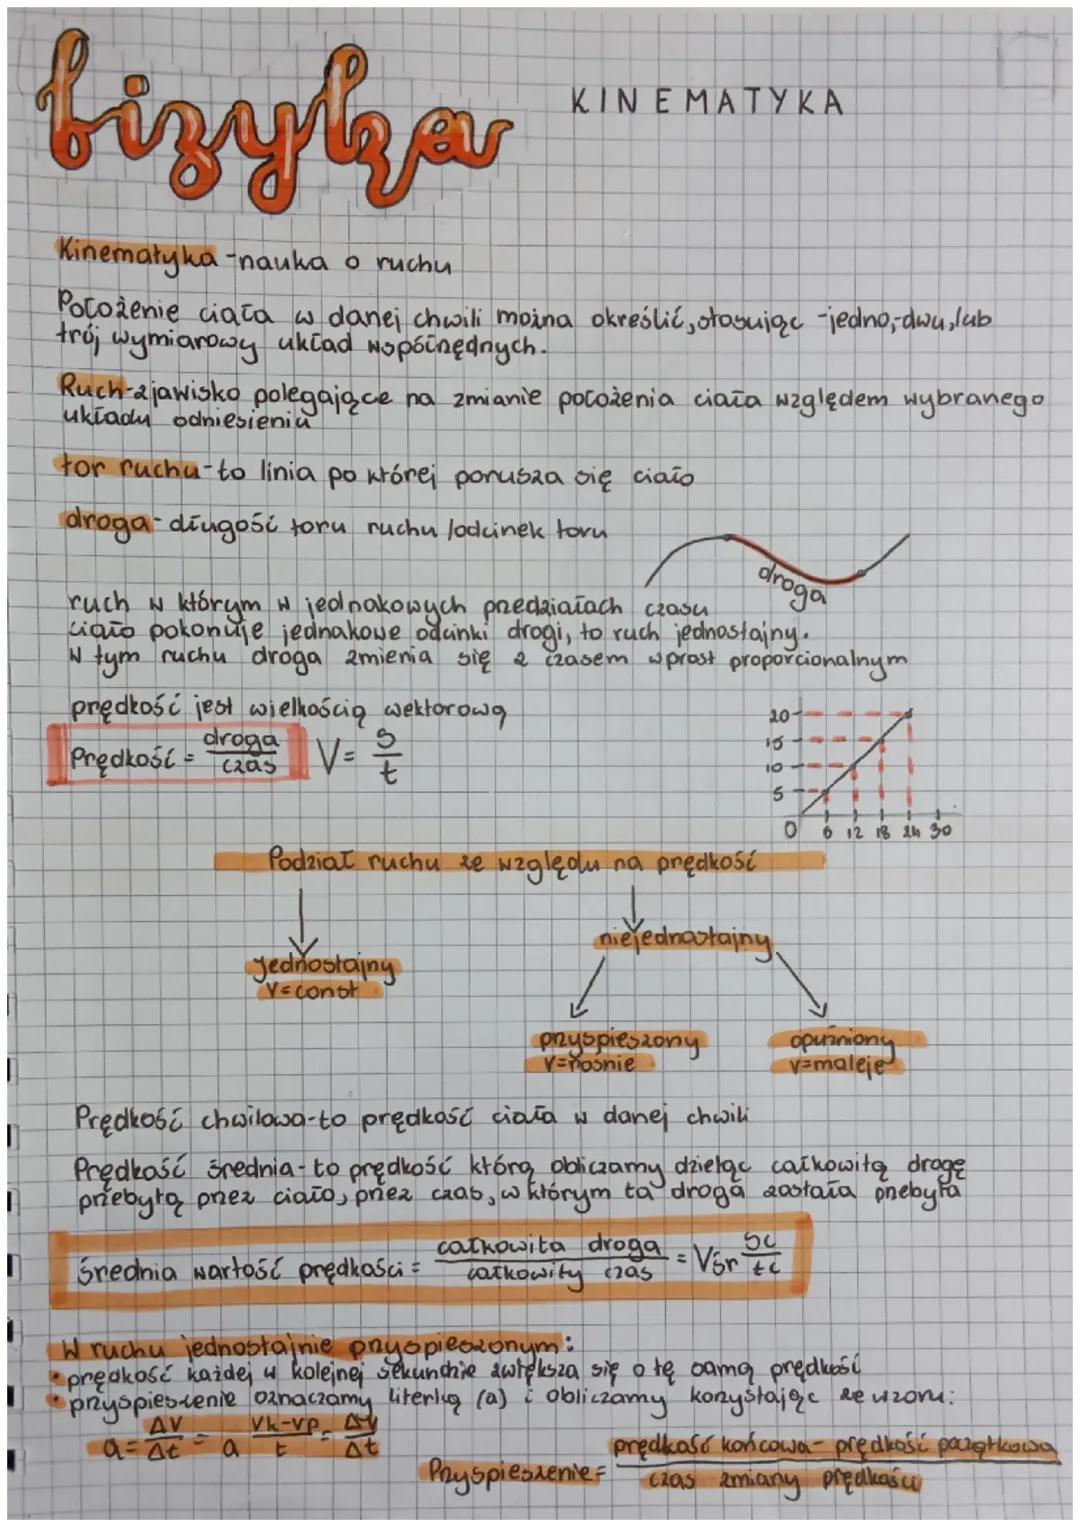 fizyka
KINEMATYKA
Kinematyka - nauka o ruchu
Położenie ciała w danej chwili można określić, stosując -jedno,-dwu,lub
trój wymiarowy układ współrzędnych.
Ruch-zjawisko polegające na zmianie położenia ciała względem wybranego
układu odniesieniu
tor ruchu-to linia po której porusza się ciało
droga- długość toru ruchu /odcinek toru
droga
ruch w którym w jednakowych przedziałach czasu
ciało pokonuje jednakowe odcinki drogi, to ruch jednostajny.
W tym ruchu droga zmienia się z czasem wprost proporcionalnym
prędkość jest wielkością wektorową
Prędkość = droga / czas V = s / t
20
15
10
5
0 6 12 18 24 30
Podział ruchu ze względu na prędkość
jednostajny
V=const
niejednostajny
przyspieszony
V=rośnie
opuźniony
v=maleje
Prędkość chwilowa-to prędkość ciała w danej chwili
Prędkość średnia-to prędkość którą obliczamy dzieląc całkowitą drogę
przebytą przez ciało, przez czas, w którym ta droga została przebyta
średnia wartość prędkości = całkowita droga / całkowity czas = Vśr sc / tc
W ruchu jednostajnie przyspieszonym:
• prędkość każdej w kolejnej sekundzie zwiększa się o tę samą prędkość
• przyspieszenie oznaczamy literką (a) i obliczamy korzystając ze wzoru:
a = ΔV / Δt = a Vk-Vp / t = ΔV / Δt
Przyspieszenie = prędkość końcowa - prędkość początkowa / czas zmiany prędkości